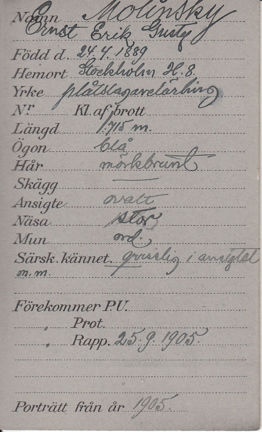 Namn Molinsky
Ernst Erik Gust.
Född d. 24.4.1889
Hemort Stockholm H.8.
Yrke plåtslagarelärling
Nr Kl. af brott
Längd 1.715 m.
Ögon blå
Hår mörkbrunt
Skägg
Ansigte ovalt
Näsa stor
Mun ord.
Särsk. kännet. i ansigtet
m.m.
Förekommer P.U.
„ Prot.
„ Rapp. 25.9.1905.
Porträtt från år 1905.